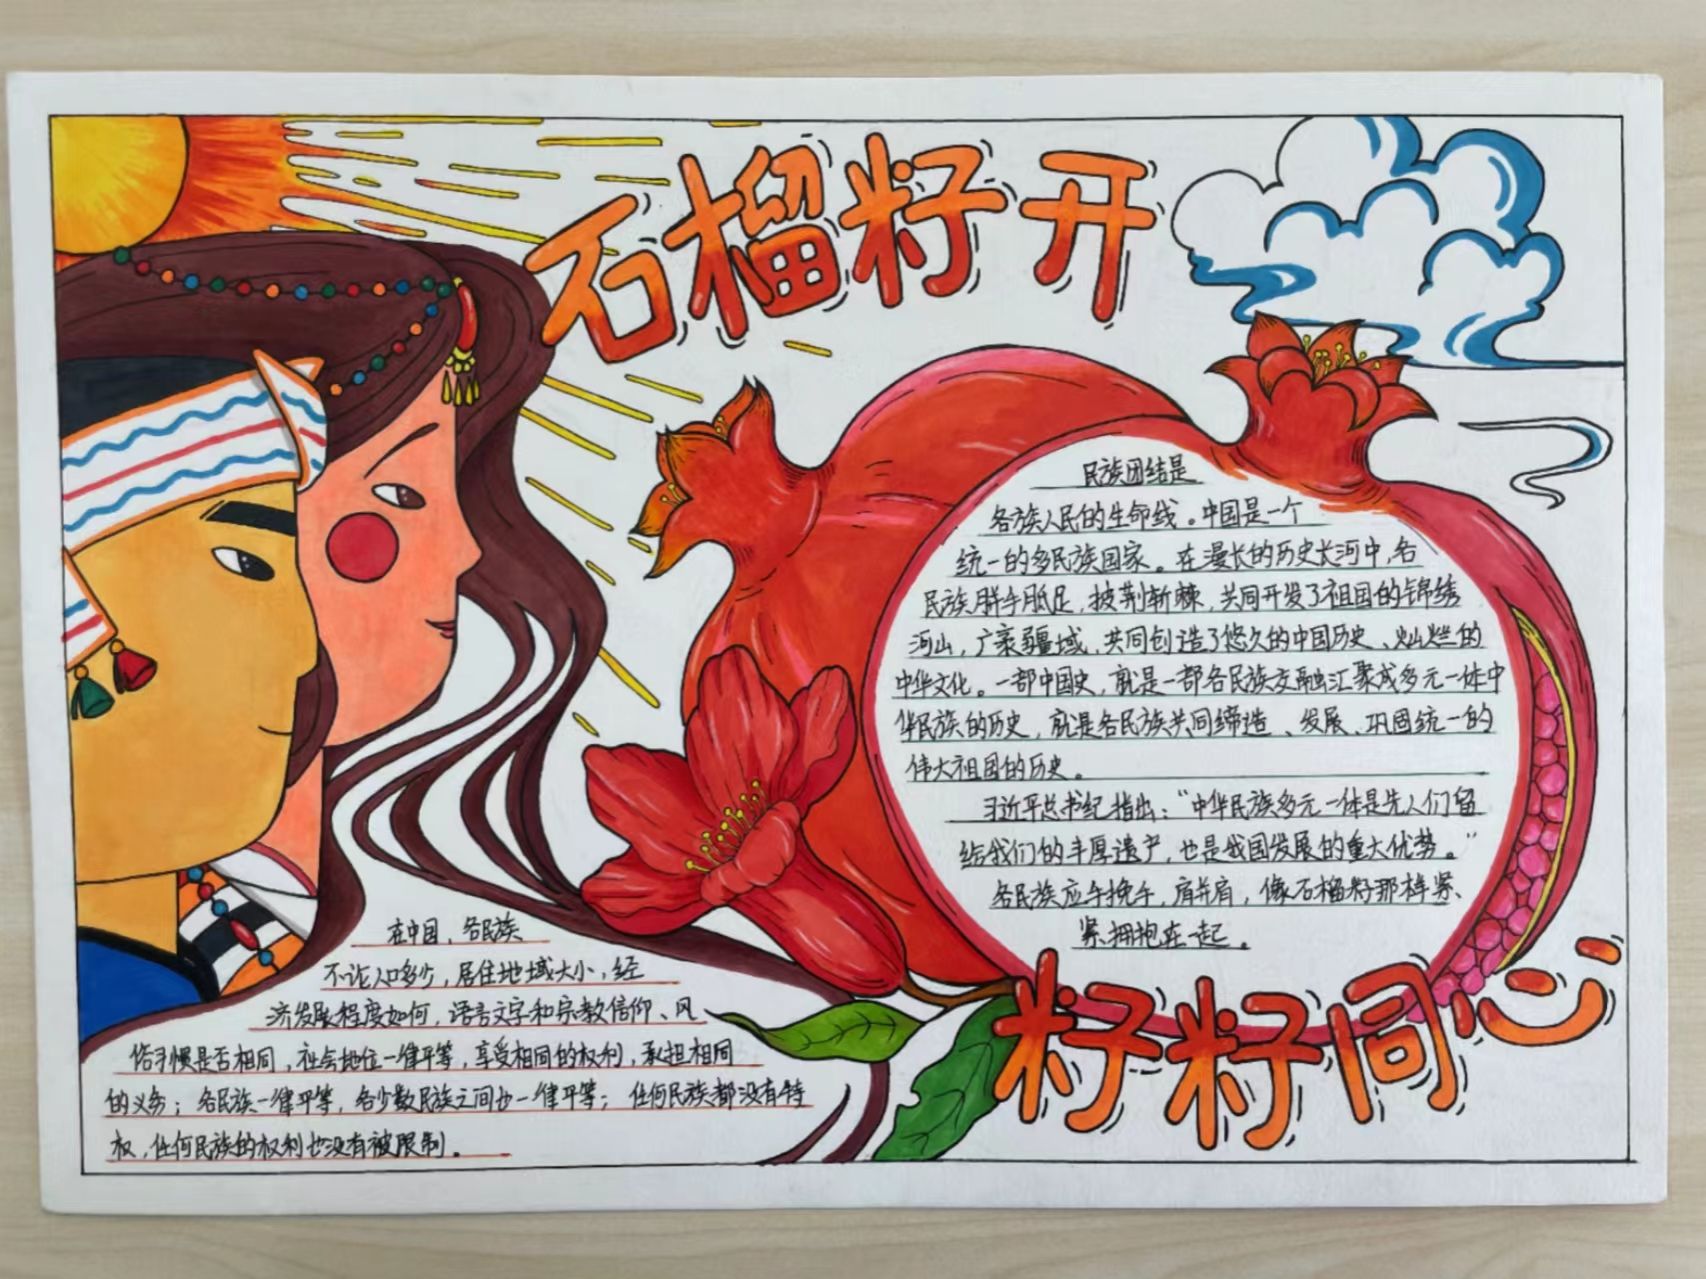 石榴籽开
民族团结是
各族人民的生命线。中国是一个
统一的多民族国家。在漫长的历史长河中,各
民族胼手胝足,披荆斩棘,共同开发了祖国的锦绣
河山,广袤疆域,共同创造了悠久的中国历史、灿烂的
中华文化。一部中国史,就是一部各民族交融汇聚成多元一体中
华民族的历史,就是各民族共同缔造、发展、巩固统一的
伟大祖国的历史。
习近平总书纪指出:“中华民族多元一体是先人们留
给我们的丰厚遗产,也是我国发展的重大优势。”
各民族应手挽手,肩并肩,像石榴籽那样紧、
紧拥抱在一起。
籽籽同心
在中国,各民族
不论人口多少,居住地域大小,经
济发展程度如何,语言文字和宗教信仰、风
俗习惯是否相同,社会地位一律平等,享受相同的权利,承担相同
的义务;各民族一律平等,各少数民族之间也一律平等;任何民族都没有特
权,任何民族的权利也没有被限制。